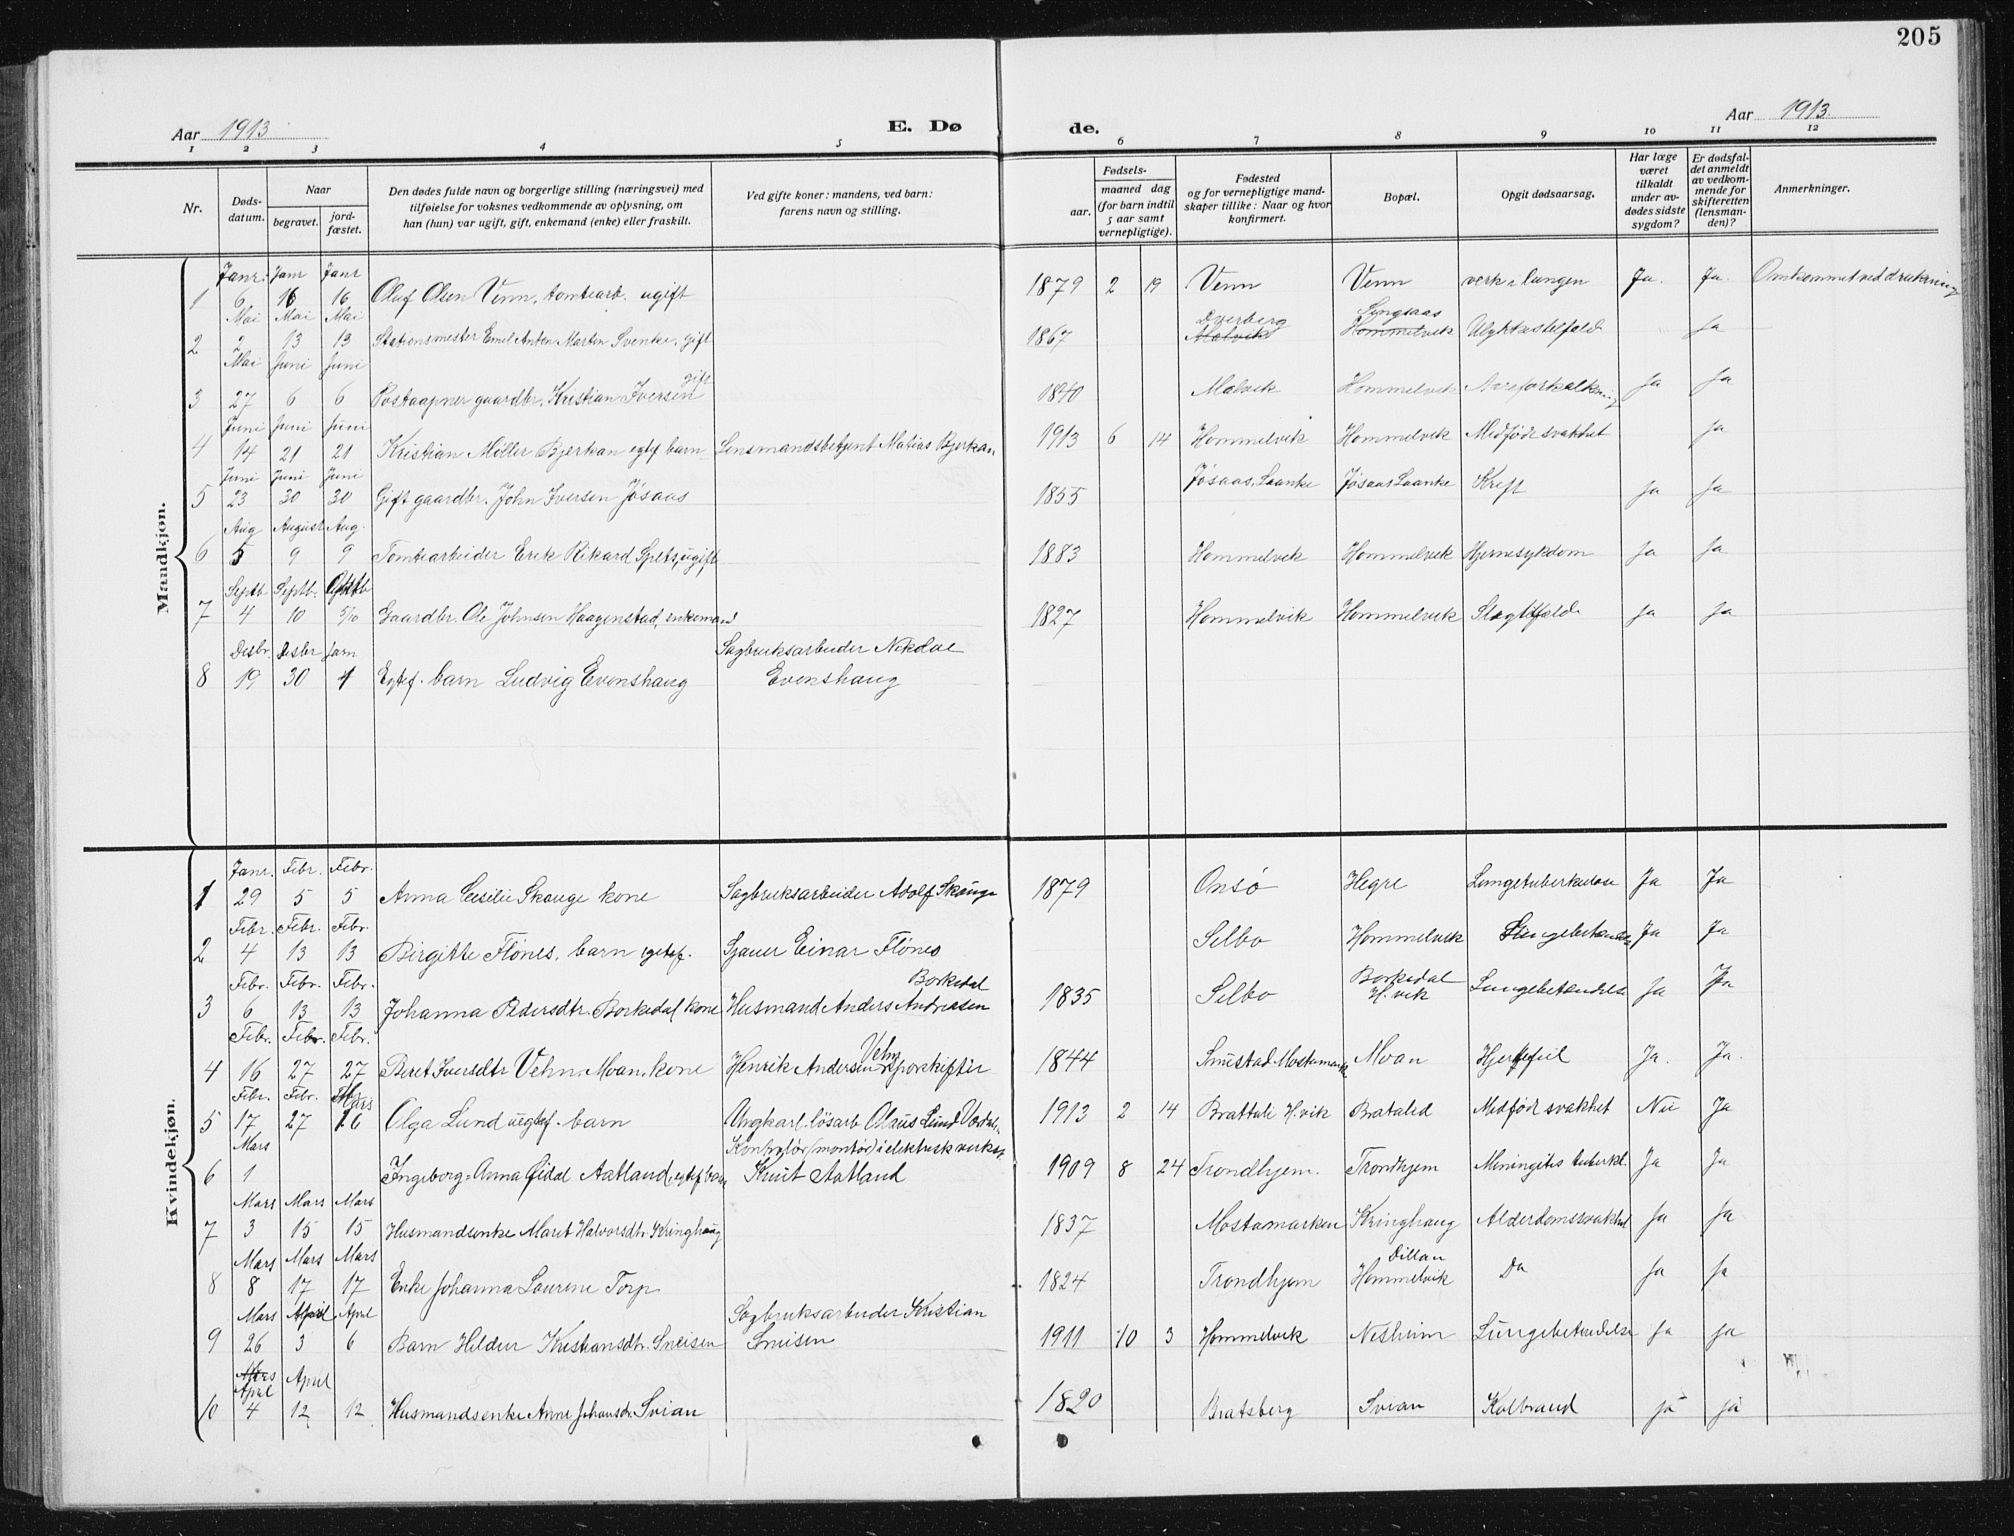 205
Aar 1913
E. Dø
de.
Aar 1913.
1 2 3 4 5 6 7 8 9 10 11 12
Nr.
Døds-
datum.
Naar
begravet.
jord-
fæstet.
Den dødes fulde navn og borgerlige stilling (næringsvei) med
tilføielse for voksnes vedkommende av oplysning, om
han (hun) var ugift, gift, enkemand (enke) eller fraskilt.
Ved gifte koner: mandens, ved barn:
farens navn og stilling.
Fødsels-
aar.
maaned dag
(for barn indtil
5 aar samt
vernepligtige).
Fødested
og for vernepligtige mand-
skaper tillike: Naar og hvor
konfirmert.
Bopæl.
Opgit dødsaarsag.
Har læge
været
tilkaldt
under av-
dødes sidste
sygdom?
Er dødsfal-
det anmeldt
av vedkom-
mende for
skifteretten
(lensman-
den)?
Anmerkninger.
Mandkjøn.
Janr. Janr Janr
1 6 16 16 Oluf Olsen Venn, tomtearb. ugift 1879 2 19 Venn Venn verk i lungen Ja. Ja. Omkommet ved drukning
Mai Mai Mai Dverberg Singsaas
2 2 13 13 Stationsmester Emil Anton Martin Svenke, gift 1867 Malvik Hommelvik Ulykkestilfælde Ja
Mai Juni Juni gift
3 27 6 6 Postaapner gaardbr. Kristian Iversen 1840 Malvik Hommelvik Aareforkalkning Ja Ja
Juni Juni Juni
4 14 21 21 Kristian Möller Bjerkan egtef barn Lensmandsbetjent Matias Bjerkan 1913 6 14 Hommelvik Hommelvik Medfödt svakhet Ja
Juni Juni Juni
5 23 30 30 Gift gaardbr. John Iversen Jøsaas 1855 Jøsaas, Laanke Jøsaas Laanke Kreft Ja Ja
Aug August Aug.
6 5 9 9 Tomtearbeider Erik Rikard Spets, ugift 1883 Hommelvik Hommelvik Hjernesykdom Ja Ja
Septb Septb. Oktb
7 4 10 5/10 Gaardbr. Ole Johnsen Haagenstad, enkemand 1827 Hommelvik Hommelvik Slagtilfælde Ja Ja
Desbr. Desbr Jarn Sagbruksarbeider Nikolai
8 19 30 4 Egtef. barn Ludvig Evenshaug Evenshaug
Kvindekjøn.
Janr. Febr. Febr.
1 29 5 5 Anna Cecilie Skauge kone Sagbruksarbeider Adolf Skauge 1879 Onsö Hegre Lungetuberkulose Ja Ja
Febr. Febr. Febr.
2 4 13 13 Birgitte Flönes, barn egtef. Sjauer Einar Flönes Selbo Hommelvik Lungebetændelse Ja Ja
Febr. Febr. Febr. Borkedal Borkedal
3 6 13 13 Johanna Pedersdtr. Borkedal kone Husmand Anders Andreasen 1835 Selbo H.vik Lungebetændelse Ja Ja
Febr. Febr. Febr. Vehn
4 16 27 27 Beret Iversdtr Vehn, Moan, kone Henrik Andersen sporskifter 1844 Snustad Mostamark Moan Hjertefeil Ja. Ja.
Febr. Febr. Mars
5 17 27 16 Olga Lund uegtef. barn Ungkarl. lösarb Olaus Lund Værdalen 1913 2 14 Brattali H.vik Bratalid Medfödt svakhet Nei Ja
Mars Kontrolör (montör) i elektrisk verkst.
6 1 Ingeborg Anna Odd Aatland, egtef barn Knut Aatland 1909 8 24 Trondhjem. Trondhjem Meningitis tuberkl. Ja Ja
Mars Mars Mars
7 3 15 15 Husmandsenke Marit Halvorsdtr. Kringhaug 1837 Mostamarken Kringhaug Alderdomssvakhet Ja Ja
Mars Mars Mars Dillan
8 8 17 17 Enke Johanna Laurene Torp 1824 Trondhjem Hommelvik Do Ja Ja
Mars April April Sagbruksarbeider Kristian
9 26 3 6 Barn Heldur Kristiansdtr. Sneisen Sneisen 1911 10 3 Hommelvik Nesheim Lungebetændelse Ja Ja
Mars
April April
10 4 12 12 Husmandsenke Anne Johansdr. Svian 1820 Bratsberg Svian Kolbrand Ja Ja